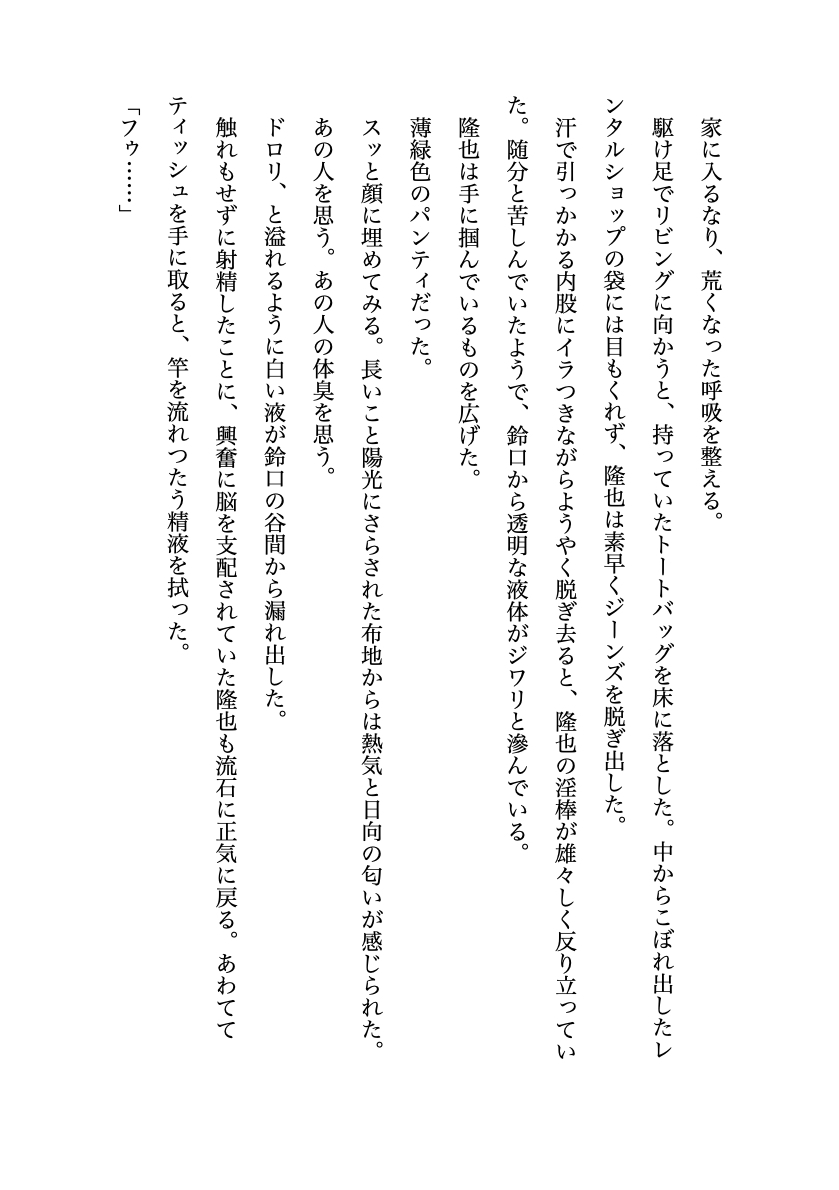 家に入るなり、荒くなった呼吸を整える。
　駆け足でリビングに向かうと、持っていたトートバッグを床に落とした。中からこぼれ出したレ
ンタルショップの袋には目もくれず、隆也は素早くジーンズを脱ぎ出した。
　汗で引っかかる内股にイラつきながらようやく脱ぎ去ると、隆也の淫棒が雄々しく反り立ってい
た。随分と苦しんでいたようで、鈴口から透明な液体がジワリと滲んでいる。
　隆也は手に掴んでいるものを広げた。
　薄緑色のパンティだった。
　スッと顔に埋めてみる。長いこと陽光にさらされた布地からは熱気と日向の匂いが感じられた。
　あの人を思う。あの人の体臭を思う。
　ドロリ、と溢れるように白い液が鈴口の谷間から漏れ出した。
　触れもせずに射精したことに、興奮に脳を支配されていた隆也も流石に正気に戻る。あわてて
ティッシュを手に取ると、竿を流れつたう精液を拭った。
「フゥ……」